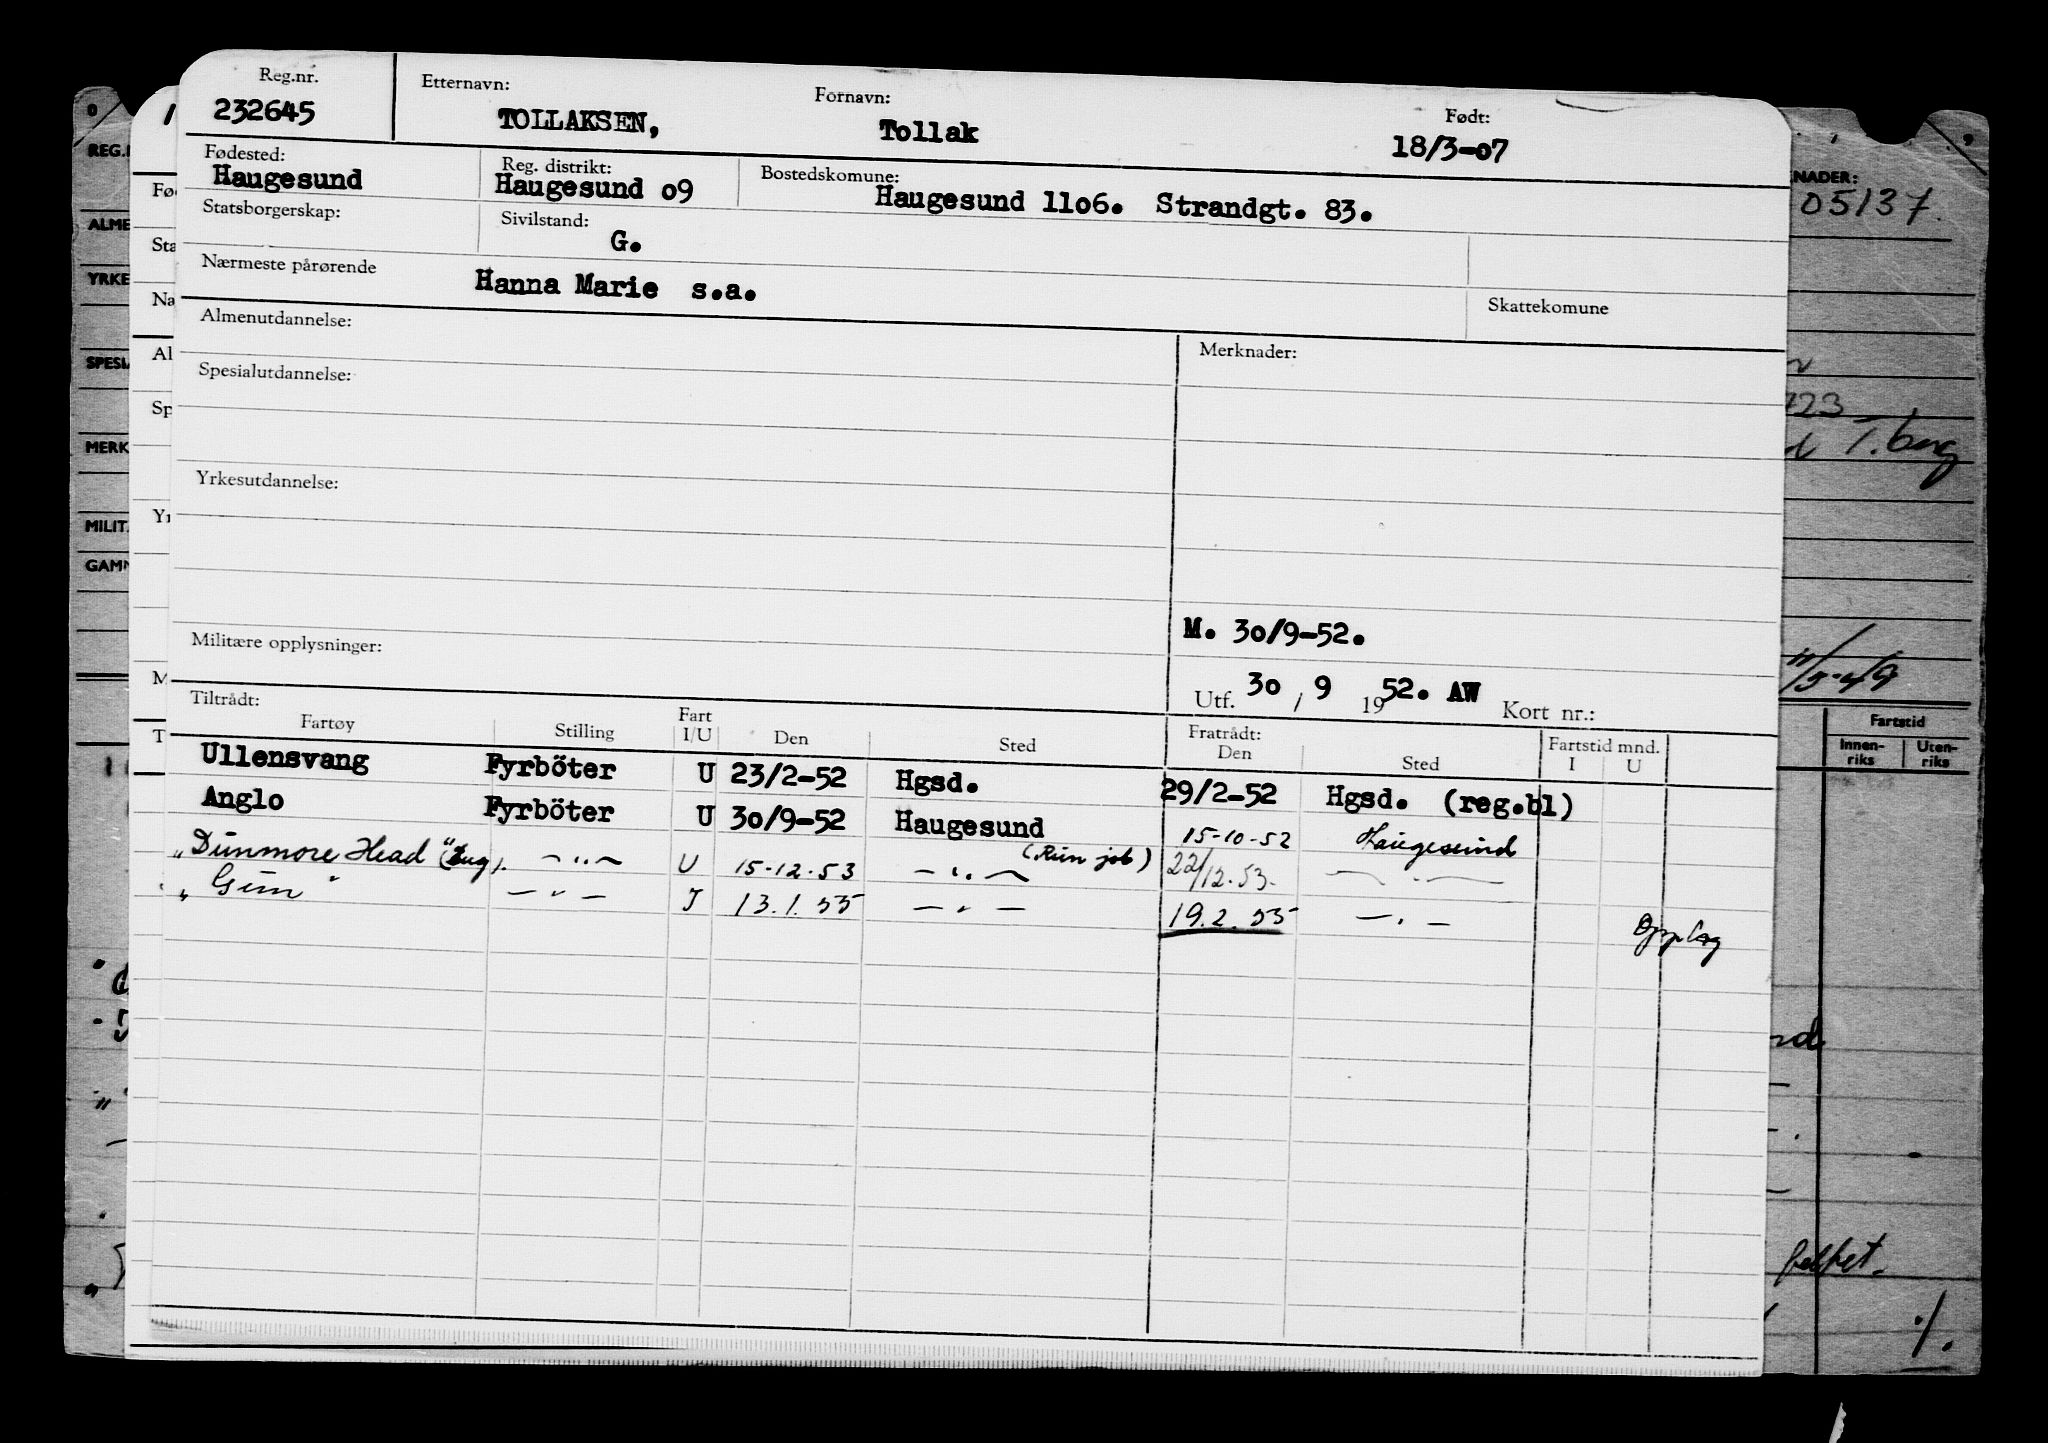 Reg.nr. Etternavn: Fornavn: Født:
232645 TOLLAKSEN, Tollak 18/3-07
Fødested: Reg. distrikt: Bostedskomune:
Haugesund Haugesund o9 Haugesund 11o6. Strandgt. 83.
Statsborgerskap: Sivilstand:
G.
Nærmeste pårørende Hanna Marie s.a. Skattekomune
Almenutdannelse: Merknader:
Spesialutdannelse:
Yrkesutdannelse:
M. 3o/9-52.
Militære opplysninger:
Utf. 3o / 9 19 52. AW Kort nr.:
Tiltrådt: Fratrådt:
Fartøy Stilling Fart I/U Den Sted Den Sted Fartstid mnd. I U
Ullensvang Fyrböter U 23/2-52 Hgsd. 29/2-52 Hgsd. (reg.bl)
Anglo Fyrböter U 3o/9-52 Haugesund 15-10-52 Haugesund
"Dunmore Head" (Eng). —"— U 15-12-53 —"— (Run job) 22/12-53. —"—
"Gun" —"— I 13.1.55 —"— 19.2.55 —"— Opplag
REG.
ALME
YRKE
SPESIA
MERK
MILIT
GAMM
KNADER:
05137.
T.berg
11/5-49
Fartstid
Innen-riks Uten-riks